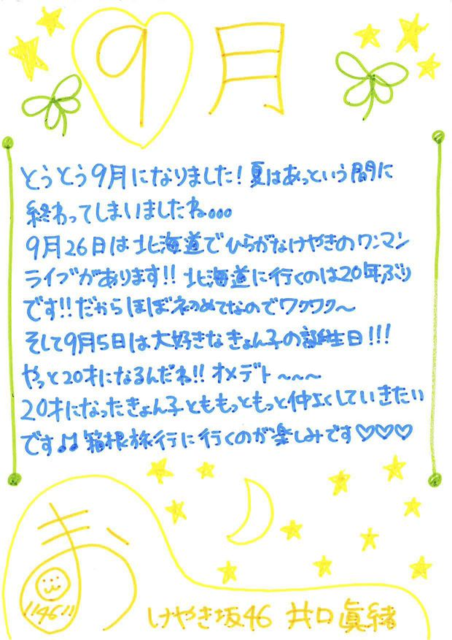 9月
とうとう9月になりました!夏はあっという間に
終わってしまいましたね。。。
9月26日は北海道でひらがなけやきのワンマン
ライブがあります!!北海道に行くのは20年ぶり
です!!だからほぼ初めてなのでワクワク〜
そして9月5日は大好きなきょん子の誕生日!!!
やっと20才になるんだね!!オメデト〜〜〜
20才になったきょん子とももっともっと仲よくしていきたい
です♪♪箱根旅行に行くのが楽しみです♡♡♡
お
けやき坂46 井口眞緒